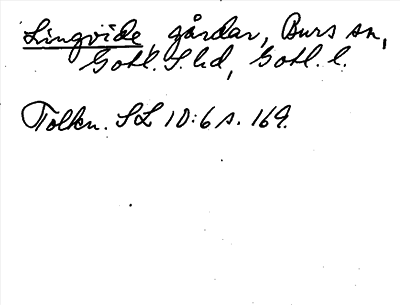 Lingvide, gårdar, Burs sn,
Gotl. S. hd, Gotl. l.
Tolkn. SL 10:6 s. 169.